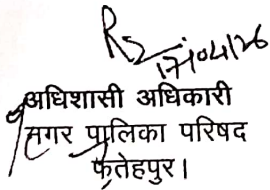 17/04/26
अधिशासी अधिकारी
नगर पालिका परिषद
फतेहपुर।